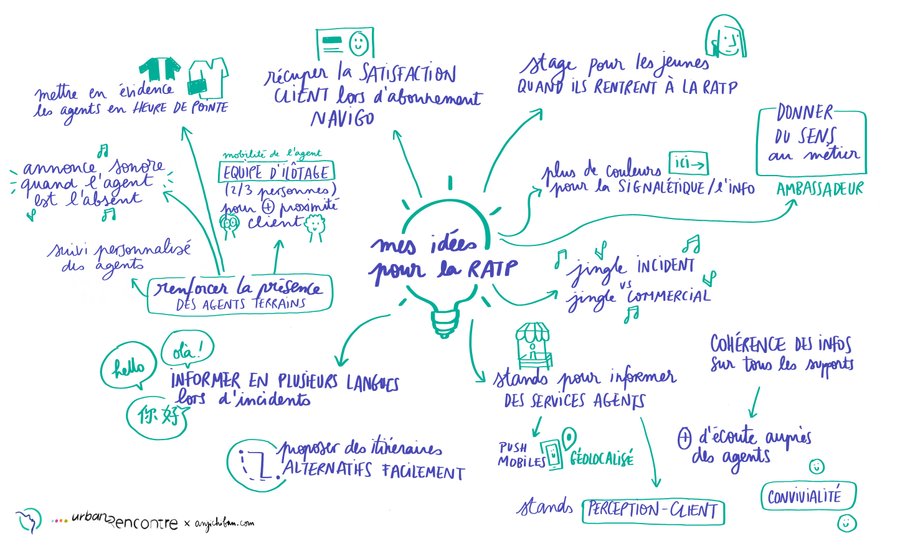 mettre en évidence
les agents en HEURE DE POINTE
récuper la SATISFACTION
CLIENT lors d'abonnement
NAVIGO
stage pour les jeunes
QUAND ILS RENTRENT À LA RATP
DONNER
DU SENS
au métier
AMBASSADEUR
annonce sonore
quand l'agent
est l'absent
mobilité de l'agent
EQUIPE D'ILÔTAGE
(2/3 personnes)
pour + proximité
client
plus de couleurs
ici →
pour la SIGNALÉTIQUE/l'info
suivi personnalisé
des agents
renforcer la présence
DES AGENTS TERRAINS
mes idées
pour la RATP
jingle INCIDENT
vs
jingle COMMERCIAL
hello
olà!
你好
INFORMER EN PLUSIEURS LANGUES
lors d'incidents
stands pour informer
DES SERVICES AGENTS
COHÉRENCE DES INFOS
sur tous les supports
proposer des itinéraires
ALTERNATIFS FACILEMENT
PUSH
MOBILES
GÉOLOCALISÉ
+ d'écoute auprès
des agents
stands PERCEPTION-CLIENT
CONVIVIALITÉ
urban rencontre x